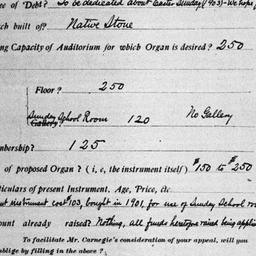 ee of Debt? To be dedicated about Easter Sunday (1903) - We hope
rch built of? Native Stone
ng Capacity of Auditorium for which Organ is desired? 250
Floor? 250
Sunday School Room 120 No Gallery
Gallery?
mbership? 125
of proposed Organ? (i, e, the instrument itself) $150 to $250
ticulars of present Instrument, Age, Price, etc.
nt instrument cost $103, bought in 1901, for use of Sunday School ro
ount already raised? Nothing, all funds heretofore raised being applie
To facilitate Mr. Carnegie's consideration of your appeal, will you
oblige by filling in the above?